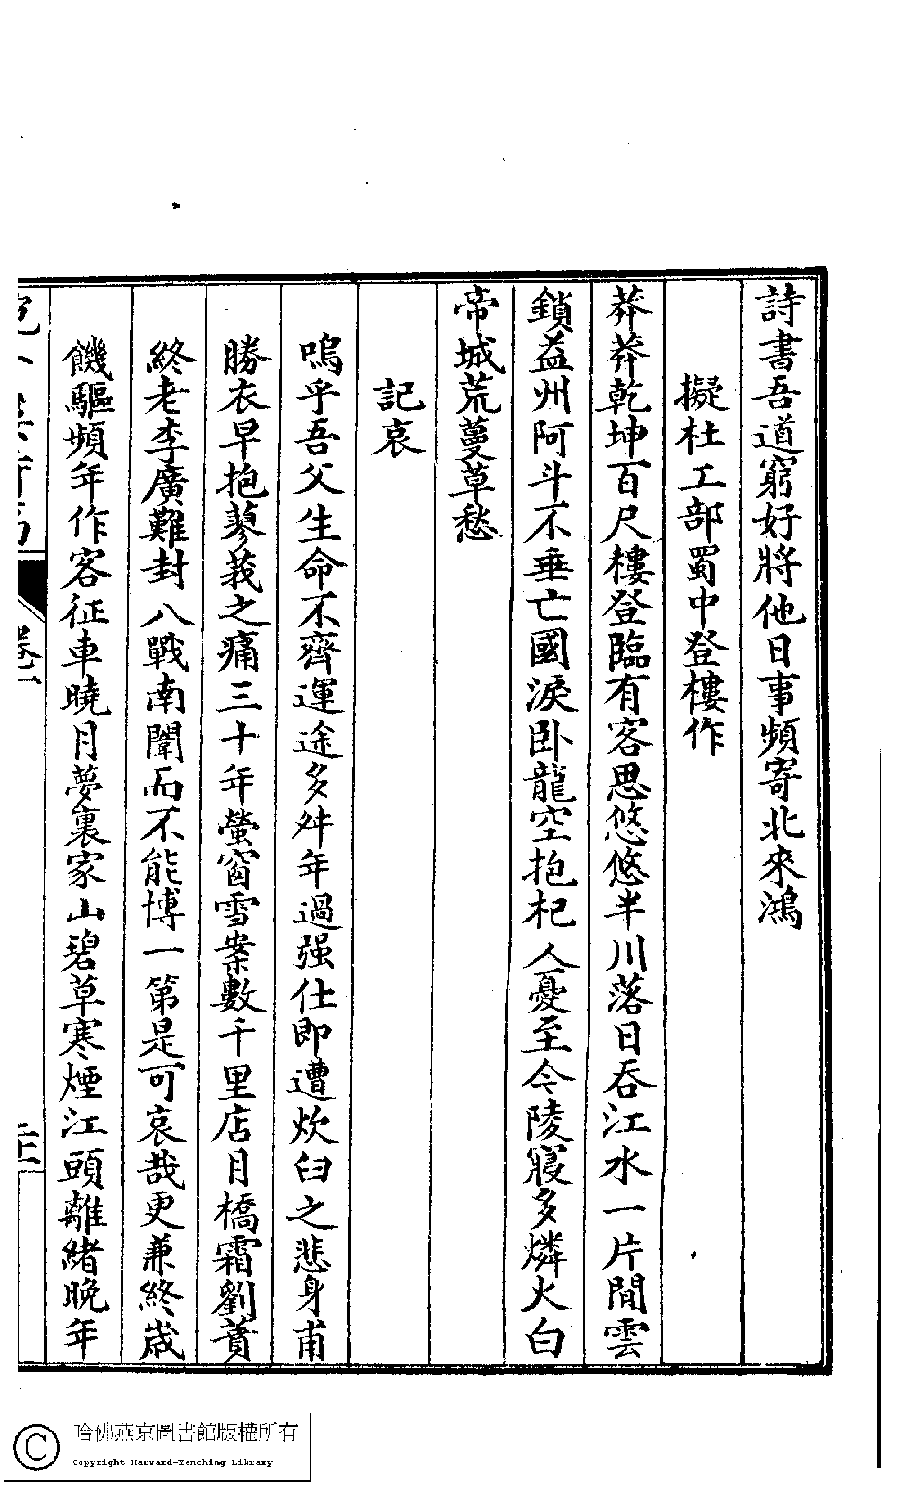 詩書吾道窮好將他日事頻寄北來鴻
擬杜工部蜀中登樓作
莽莽乾坤百尺樓登臨有客思悠悠半川落日吞江水一片閒雲
鎖益州阿斗不垂亡國淚卧龍空抱杞人憂至今陵寢多燐火白
帝城荒蔓草愁
記哀
嗚乎吾父生命不齊運途多舛年過强仕即遭炊臼之悲身甫
勝衣早抱蓼莪之痛三十年螢窗雪案數千里店月橋霜劉蕡
終老李廣難封八戰南闈而不能博一第是可哀哉更兼終歲
饑驅頻年作客征車曉月夢裏家山碧草寒煙江頭離緒晚年
卷一
哈佛燕京圖書館版權所有
Copyright Harvard-Yenching Library